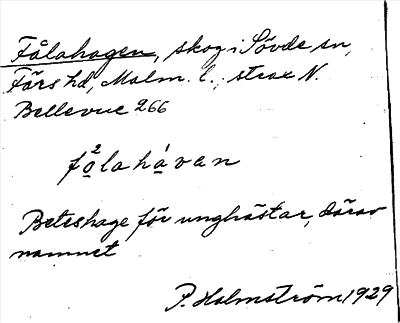 Fålahagen, skog i Sövde sn,
Färs hd, Malm. l.; strax N.
Bellevue 266
fo̲²lahá̲van
Beteshage för unghästar, därav
namnet
P. Holmström 1929